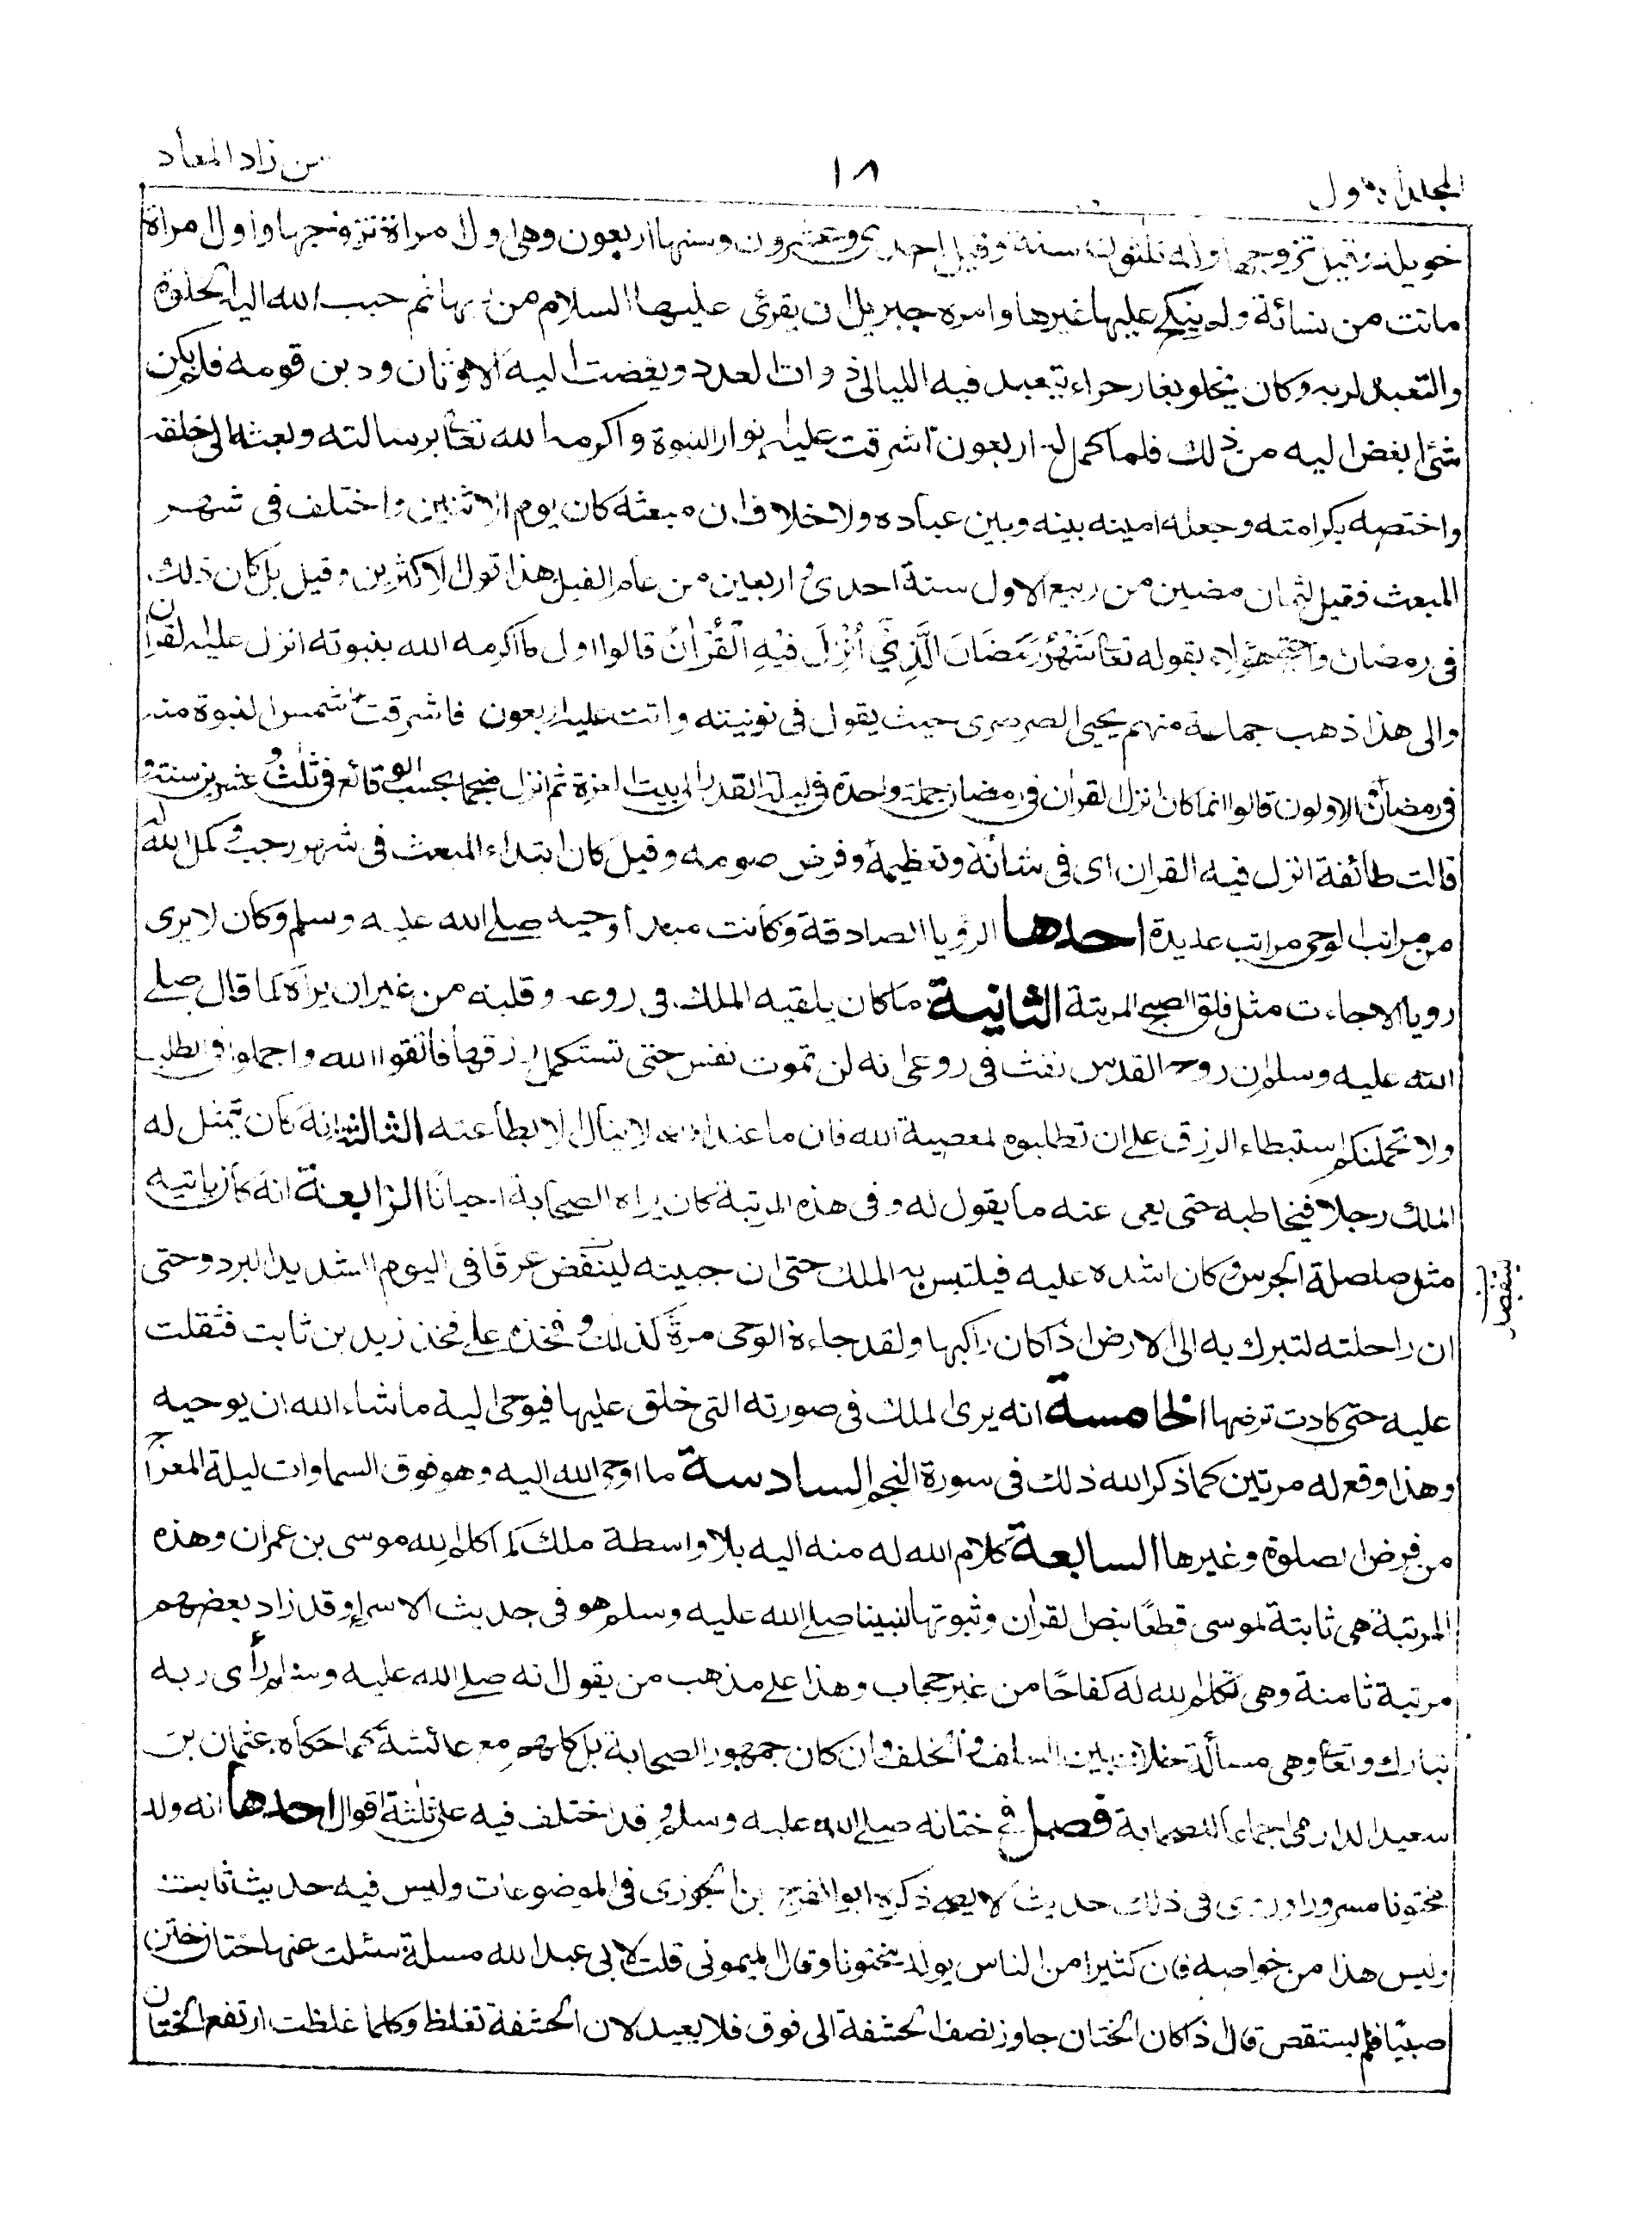 المجلد الاول
١٨
من زاد المعاد
خويلد وقيل تزوجها وله ثلثون سنة وقيل احدى وعشرون وسنها اربعون وهى اول امراة تزوجها واول امراة
ماتت من نسائه ولم ينكح عليها غيرها وامره جبريل ان يقرئ عليها السلام من ربها ثم حبب الله اليه الخلوة
والتعبد لربه وكان يخلو بغار حراء يتعبد فيه الليالى ذوات العدد وبغضت اليه الاوثان ودين قومه فلم يكن
شئ ابغض اليه من ذلك فلما كمل له اربعون اشرقت عليه انوار النبوة واكرمه الله تعا برسالته وبعثه الى خلقه
واختصه بكرامته وجعله امينه بينه وبين عباده ولا خلاف ان مبعثه كان يوم الاثنين واختلف فى شهر
المبعث فقيل لثمان مضين من ربيع الاول سنة احدى و اربعين من عام الفيل هذا قول الاكثرين وقيل بل كان ذلك
فى رمضان واحتج هؤلاء بقوله تعا شَهْرُ رَمَضَانَ الَّذِيْ أُنْزِلَ فِيْهِ الْقُرْاٰنُ قالوا اول ما اكرمه الله بنبوته انزل عليه القران
والى هذا ذهب جماعة منهم يحيى الصرصرى حيث يقول فى نونيته واتت عليه اربعون فاشرقت شمس النبوة منه
فى رمضان والاولون قالوا انما كان انزل القران فى رمضان جملة واحدة فى ليلة القدر الى بيت العزة ثم انزل نجما بحسب الوقائع فى ثلث و عشرين سنة و
قالت طائفة انزل فيه القران اى فى شانه وتعظيمه وفرض صومه وقيل كان ابتداء المبعث فى شهر رجب وكمل الله له
من مراتب الوحى مراتب عديدة احدها الرؤيا الصادقة وكانت مبدأ وحيه صلے الله عليه وسلم وكان لا يرى
رويا الا جاءت مثل فلق الصبح المرتبة الثانية ما كان يلقيه الملك فى روعه وقلبه من غير ان يراه كما قال صلے
الله عليه وسلم ان روح القدس نفث فى روعى انه لن تموت نفس حتى تستكمل رزقها فاتقوا الله واجملوا فى الطلب
ولا تحملنكم استبطاء الرزق على ان تطلبوه لمعصية الله فان ما عند الله لا ينال الا بطاعته الثالثة انه كان يتمثل له
الملك رجلا فيخاطبه حتى يعى عنه ما يقول له وفى هذه المرتبة كان يراه الصحابة احيانًا الرابعة انه كان ياتيه
مثل صلصلة الجرس وكان اشده عليه فيلتبس به الملك حتى ان جبينه لينفض عرقًا فى اليوم الشديد البرد وحتى
ان راحلته لتبرك به الى الارض اذا كان راكبها ولقد جاءه الوحى مرةً كذلك و فخذه على فخذ زيد بن ثابت فثقلت
عليه حتى كادت ترضها الخامسة انه يرى الملك فى صورته التى خلق عليها فيوحى اليه ما شاء الله ان يوحيه
وهذا وقع له مرتين كما ذكر الله ذلك فى سورة النجم السادسة ما اوحى الله اليه وهو فوق السماوات ليلة المعراج
من فرض الصلوة وغيرها السابعة كلام الله له منه اليه بلا واسطة ملك كما كلم الله موسى بن عمران وهذه
المرتبة هى ثابتة لموسى قطعًا بنص القران وثبوتها لنبينا صلے الله عليه وسلم هو فى حديث الاسراء وقد زاد بعضهم
مرتبة ثامنة وهى تكلم الله له كفاحًا من غير حجاب وهذا على مذهب من يقول انه صلے الله عليه وسلم رأى ربه
تبارك وتعا وهى مسألة خلاف بين السلف والخلف وان كان جمهور الصحابة بل كلهم مع عائشة كما حكاه عثمان بن
سعيد الدارمى اجماعا للصحابة فصل فى ختانه صلے الله عليه وسلم و قد اختلف فيه على ثلثة اقوال احدها انه ولد
مختونا مسرورا وروى فى ذلك حديث لا يصح ذكره ابو الفرج بن الجوزى فى الموضوعات وليس فيه حديث ثابت
وليس هذا من خواصه فان كثيرا من الناس يولد مختونا وقال الميمونى قلت لابى عبد الله مسلة سئلت عنها ختان ختن
صبيًا فلم يستقص قال اذا كان الختان جاوز نصف الحشفة الى فوق فلا يعيد لان الحشفة تغلظ وكلما غلظت ارتفع الختان